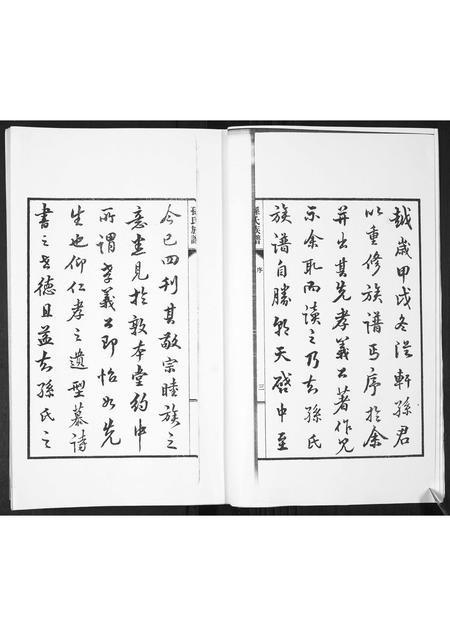 越歲甲戌冬從軒孫君
以重修族譜丐序於余
并出其先孝義公著作見
示余取而讀之乃知孫氏
族譜自勝朝天啓中至
孫氏族譜
序
三
孫氏族譜
今已四刊其敬宗睦族之
意悉見於敦本堂約中
所謂孝義公即怡如先
生也仰仁孝之遺型慕詩
書之世德且益知孫氏之